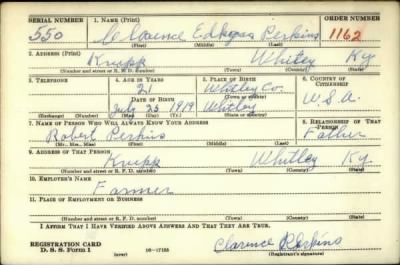 SERIAL NUMBER 1. NAME (Print) ORDER NUMBER
550 Clarence Edkgas Perkins 1162
(First) (Middle) (Last)
2. ADDRESS (Print)
Krupp Whitley Ky.
(Number and street or R. F. D. number) (Town) (County) (State)
3. TELEPHONE 4. AGE IN YEARS 5. PLACE OF BIRTH 6. COUNTRY OF CITIZENSHIP
21 Whitley Co.
DATE OF BIRTH (Town or county)
July 25 1919 Whitley U.S.A.
(Exchange) (Number) (Mo.) (Day) (Yr.) (State or country)
7. NAME OF PERSON WHO WILL ALWAYS KNOW YOUR ADDRESS 8. RELATIONSHIP OF THAT PERSON
Robert Perkins Father
(Mr., Mrs., Miss) (First) (Middle) (Last)
9. ADDRESS OF THAT PERSON
Krupp Whitley Ky.
(Number and street or R. F. D. number) (Town) (County) (State)
10. EMPLOYER'S NAME
Farmer
11. PLACE OF EMPLOYMENT OR BUSINESS
(Number and street or R. F. D. number) (Town) (County) (State)
I AFFIRM THAT I HAVE VERIFIED ABOVE ANSWERS AND THAT THEY ARE TRUE.
REGISTRATION CARD
D. S. S. Form 1 (over) 16—17105 Clarence Perkins
(Registrant's signature)